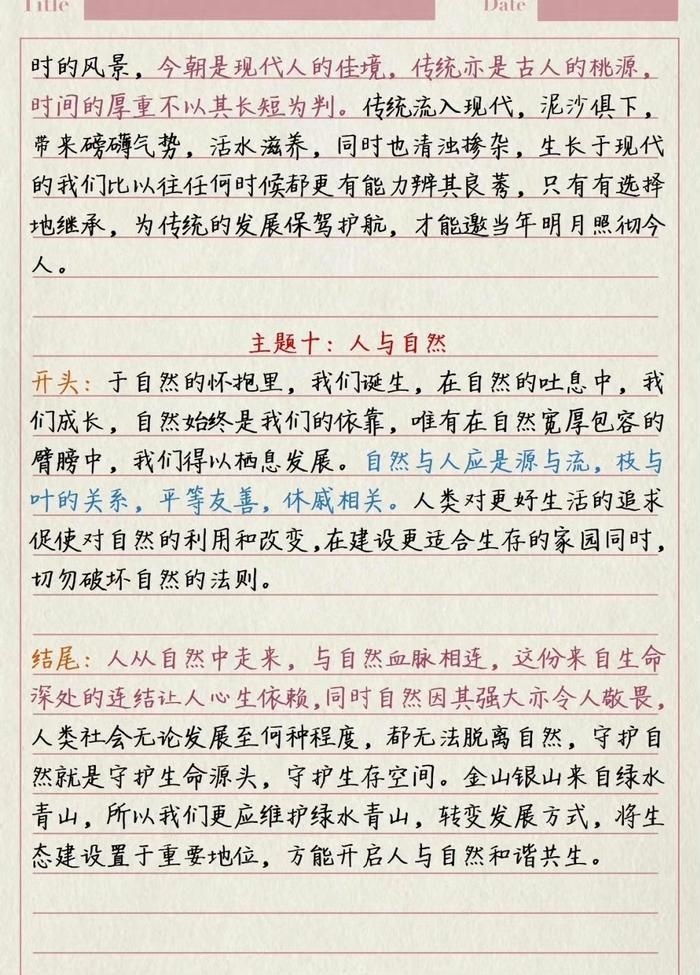 Title Date
时的风景，今朝是现代人的佳境，传统亦是古人的桃源，
时间的厚重不以其长短为判。传统流入现代，泥沙俱下，
带来磅礴气势，活水滋养，同时也清浊掺杂，生长于现代
的我们比以往任何时候都更有能力辨其良莠，只有有选择
地继承，为传统的发展保驾护航，才能邀当年明月照彻今
人。
主题十：人与自然
开头：于自然的怀抱里，我们诞生，在自然的吐息中，我
们成长，自然始终是我们的依靠，唯有在自然宽厚包容的
臂膀中，我们得以栖息发展。自然与人应是源与流，枝与
叶的关系，平等友善，休戚相关。人类对更好生活的追求
促使对自然的利用和改变,在建设更适合生存的家园同时，
切勿破坏自然的法则。
结尾：人从自然中走来，与自然血脉相连，这份来自生命
深处的连结让人心生依赖,同时自然因其强大亦令人敬畏，
人类社会无论发展至何种程度，都无法脱离自然，守护自
然就是守护生命源头，守护生存空间。金山银山来自绿水
青山，所以我们更应维护绿水青山，转变发展方式，将生
态建设置于重要地位，方能开启人与自然和谐共生。